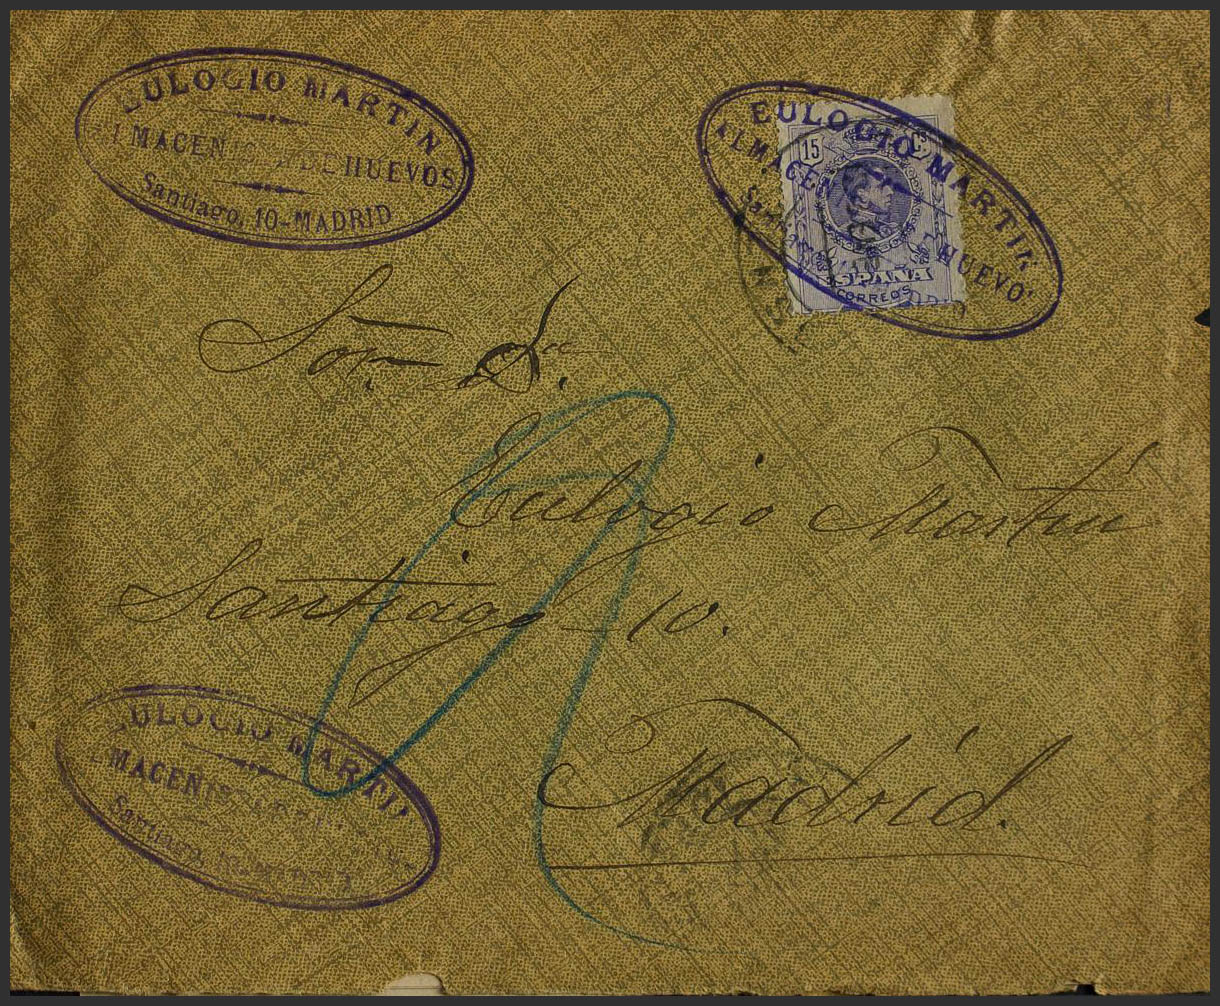 EULOGIO MARTIN
ALMACENISTA DE HUEVOS
Santiago, 10-MADRID
EULOGIO MARTIN
ALMACENISTA DE HUEVOS
15
ESPAÑA
CORREOS
Sor. D.
Eulogio Martin
Santiago 10.
Madrid.
EULOGIO MARTIN
MACENIS
Santiago, 10.